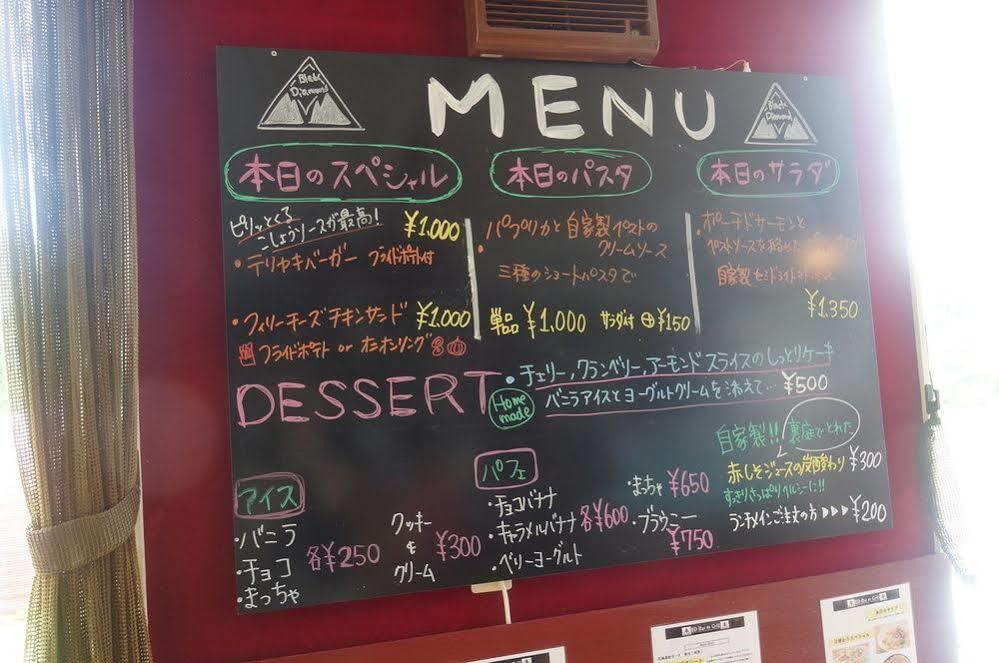 Black
Diamond
MENU
Black
Diamond
本日のスペシャル
ピリッとくる
こしょうソースが最高!
¥1,000
・テリヤキバーガー フライドポテト付
・フィリーチーズチキンサンド ¥1,000
フライドポテト or オニオンリング
本日のパスタ
・パプリカと自家製ペストの
クリームソース
三種のショートパスタで
単品 ¥1,000 サラダ付 ⊕¥150
本日のサラダ
・ポーチドサーモンと
ペストソースを
自家製セミドライトマト
¥1,350
DESSERT
Home made
・チェリー,クランベリー,アーモンドスライスのしっとりケーキ
バニラアイスとヨーグルトクリームを添えて… ¥500
アイス
・バニラ
・チョコ
・まっちゃ
各¥250
クッキー
&
クリーム
¥300
パフェ
・チョコバナナ
・キャラメルバナナ
・ベリーヨーグルト
各¥600
・まちゃ ¥650
・ブラウニー
¥750
自家製!! 裏庭でとれた
赤しそジュースの炭酸割り ¥300
すっきりさっぱりヘルシーに!!
ランチメインご注文の方 ▶▶▶ ¥200